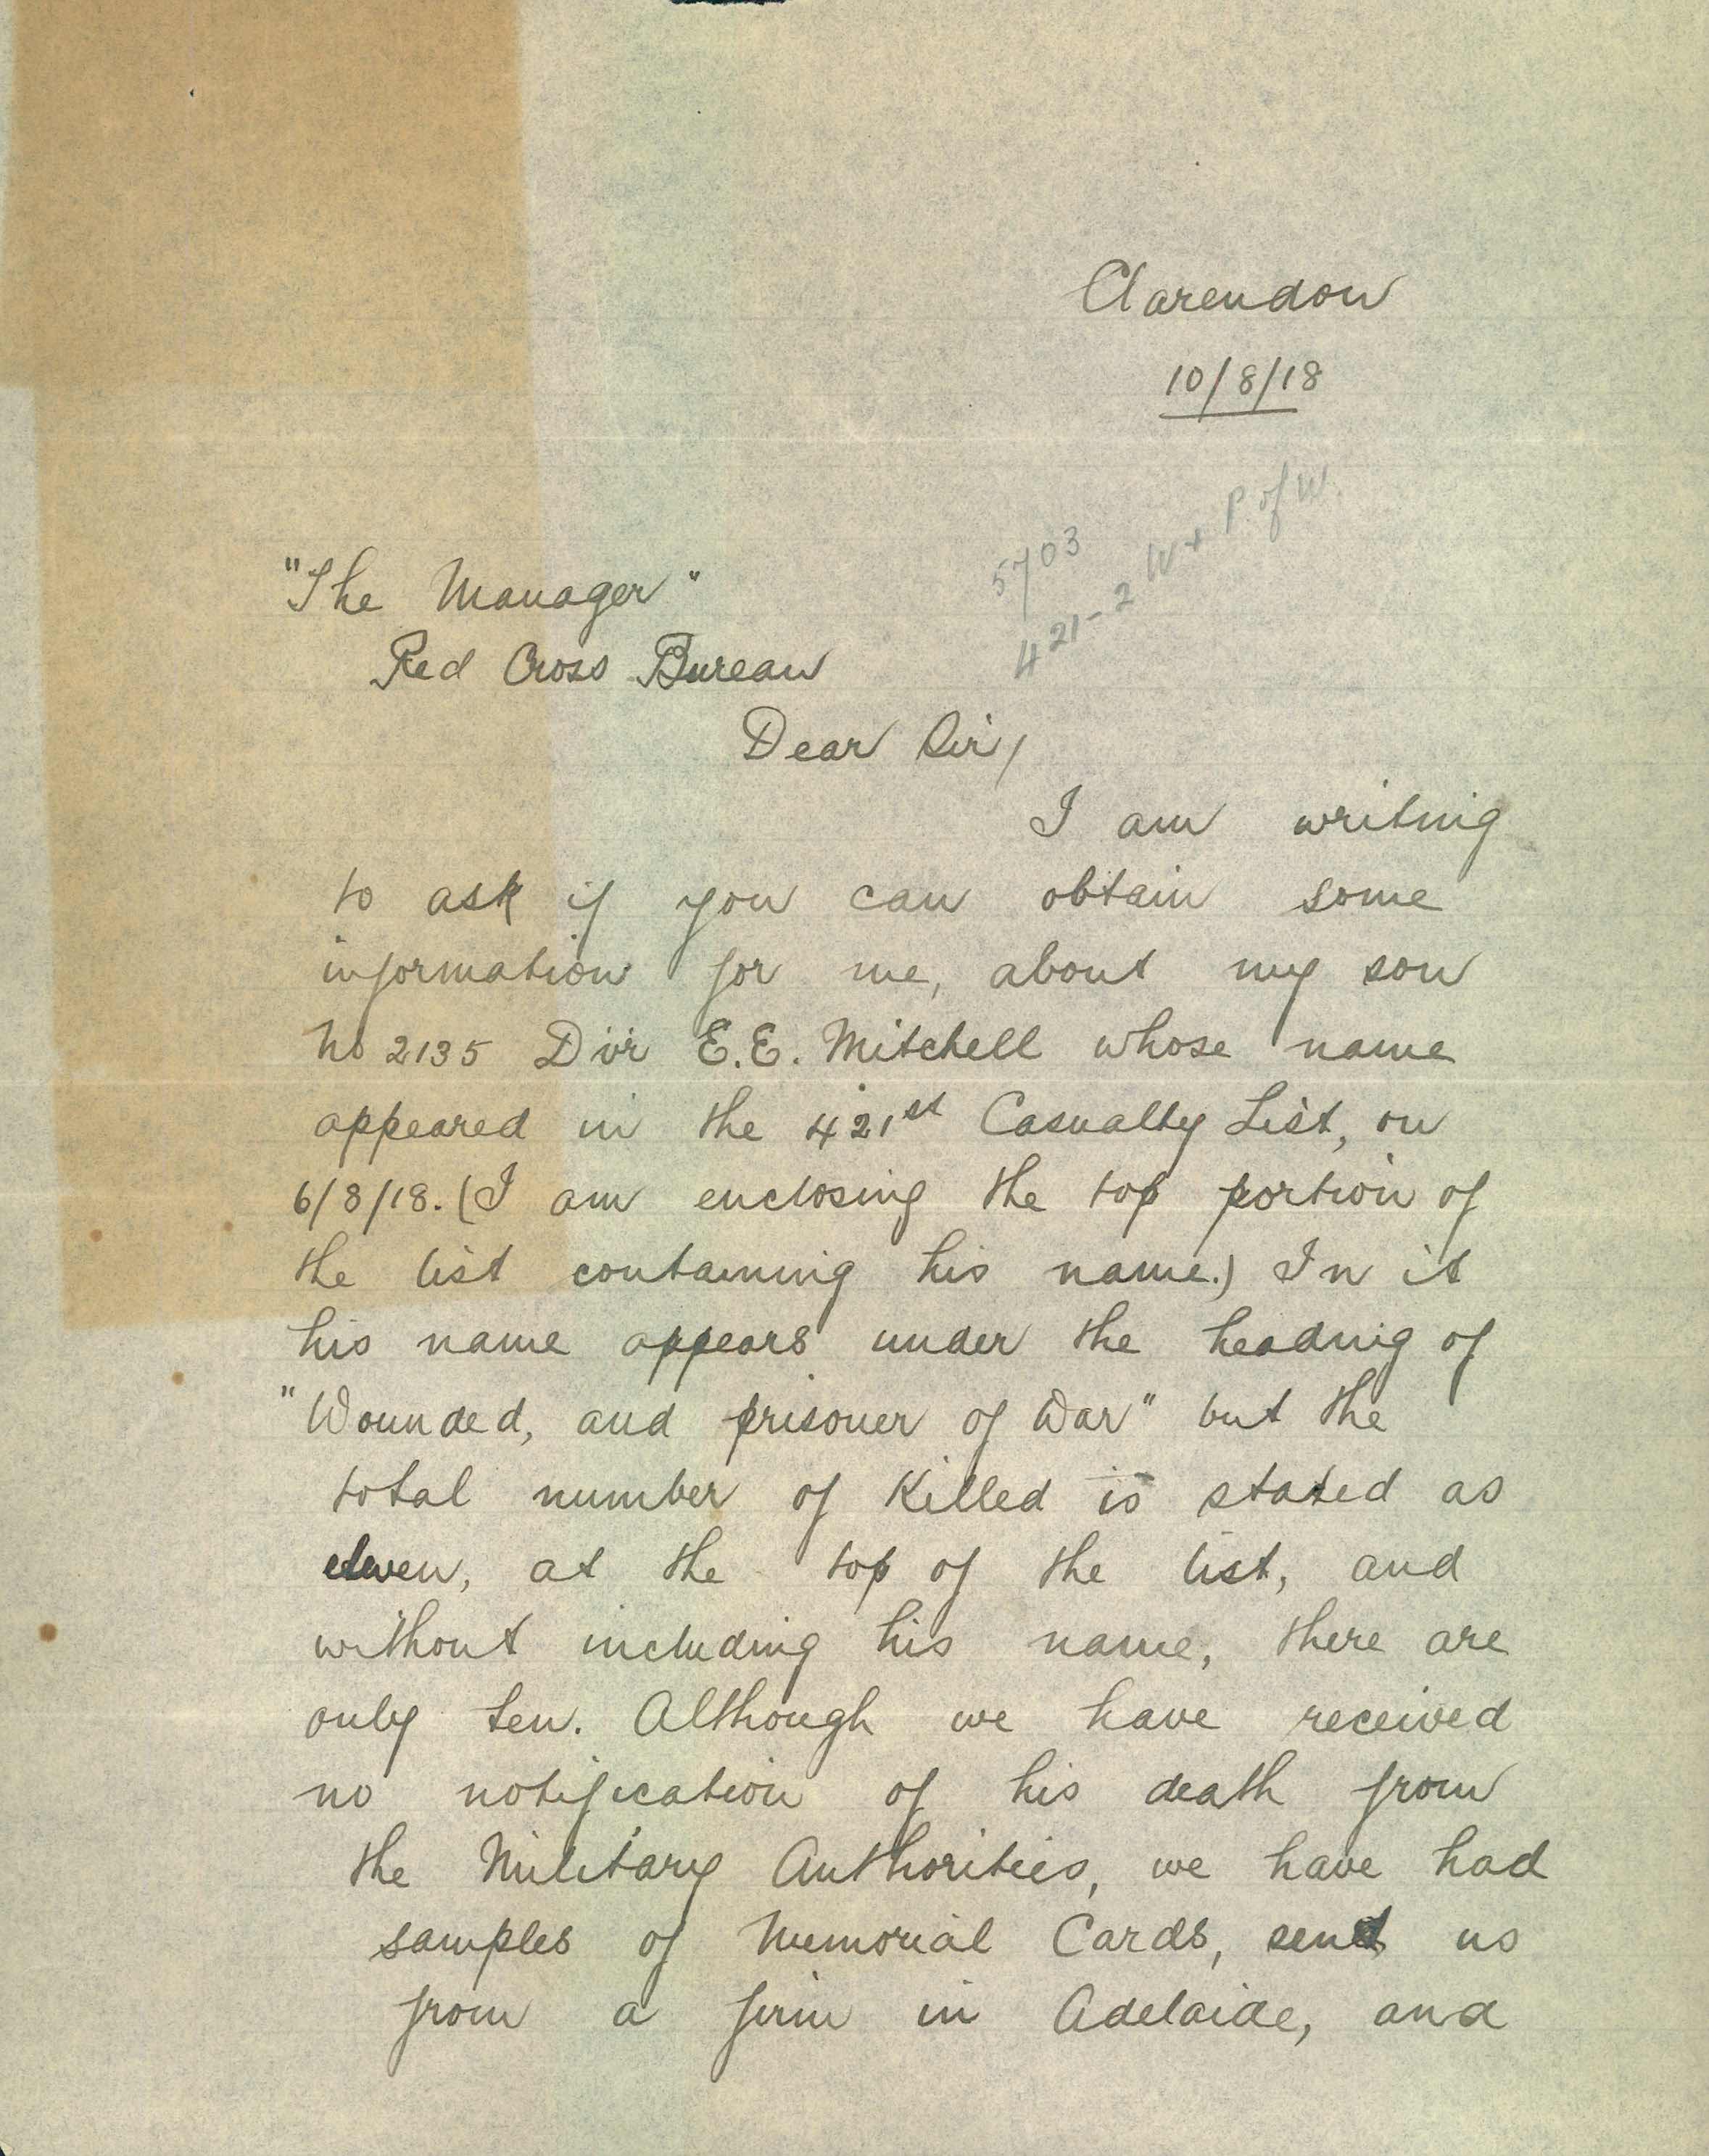 Clarendon
10/8/18
5703
421-2 W + P. of W.
"The Manager"
Red Cross Bureau
Dear Sir,
I am writing
to ask if you can obtain some
information for me, about my son
No 2135 Dvr E.E. Mitchell whose name
appeared in the 421st Casualty List, on
6/8/18. (I am enclosing the top portion of
the list containing his name.) In it
his name appears under the heading of
"Wounded, and prisoner of War" but the
total number of Killed is stated as
eleven, at the top of the list, and
without including his name, there are
only ten. Although we have received
no notification of his death from
the Military Authorities, we have had
samples of Memorial Cards, sent us
from a firm in Adelaide, and